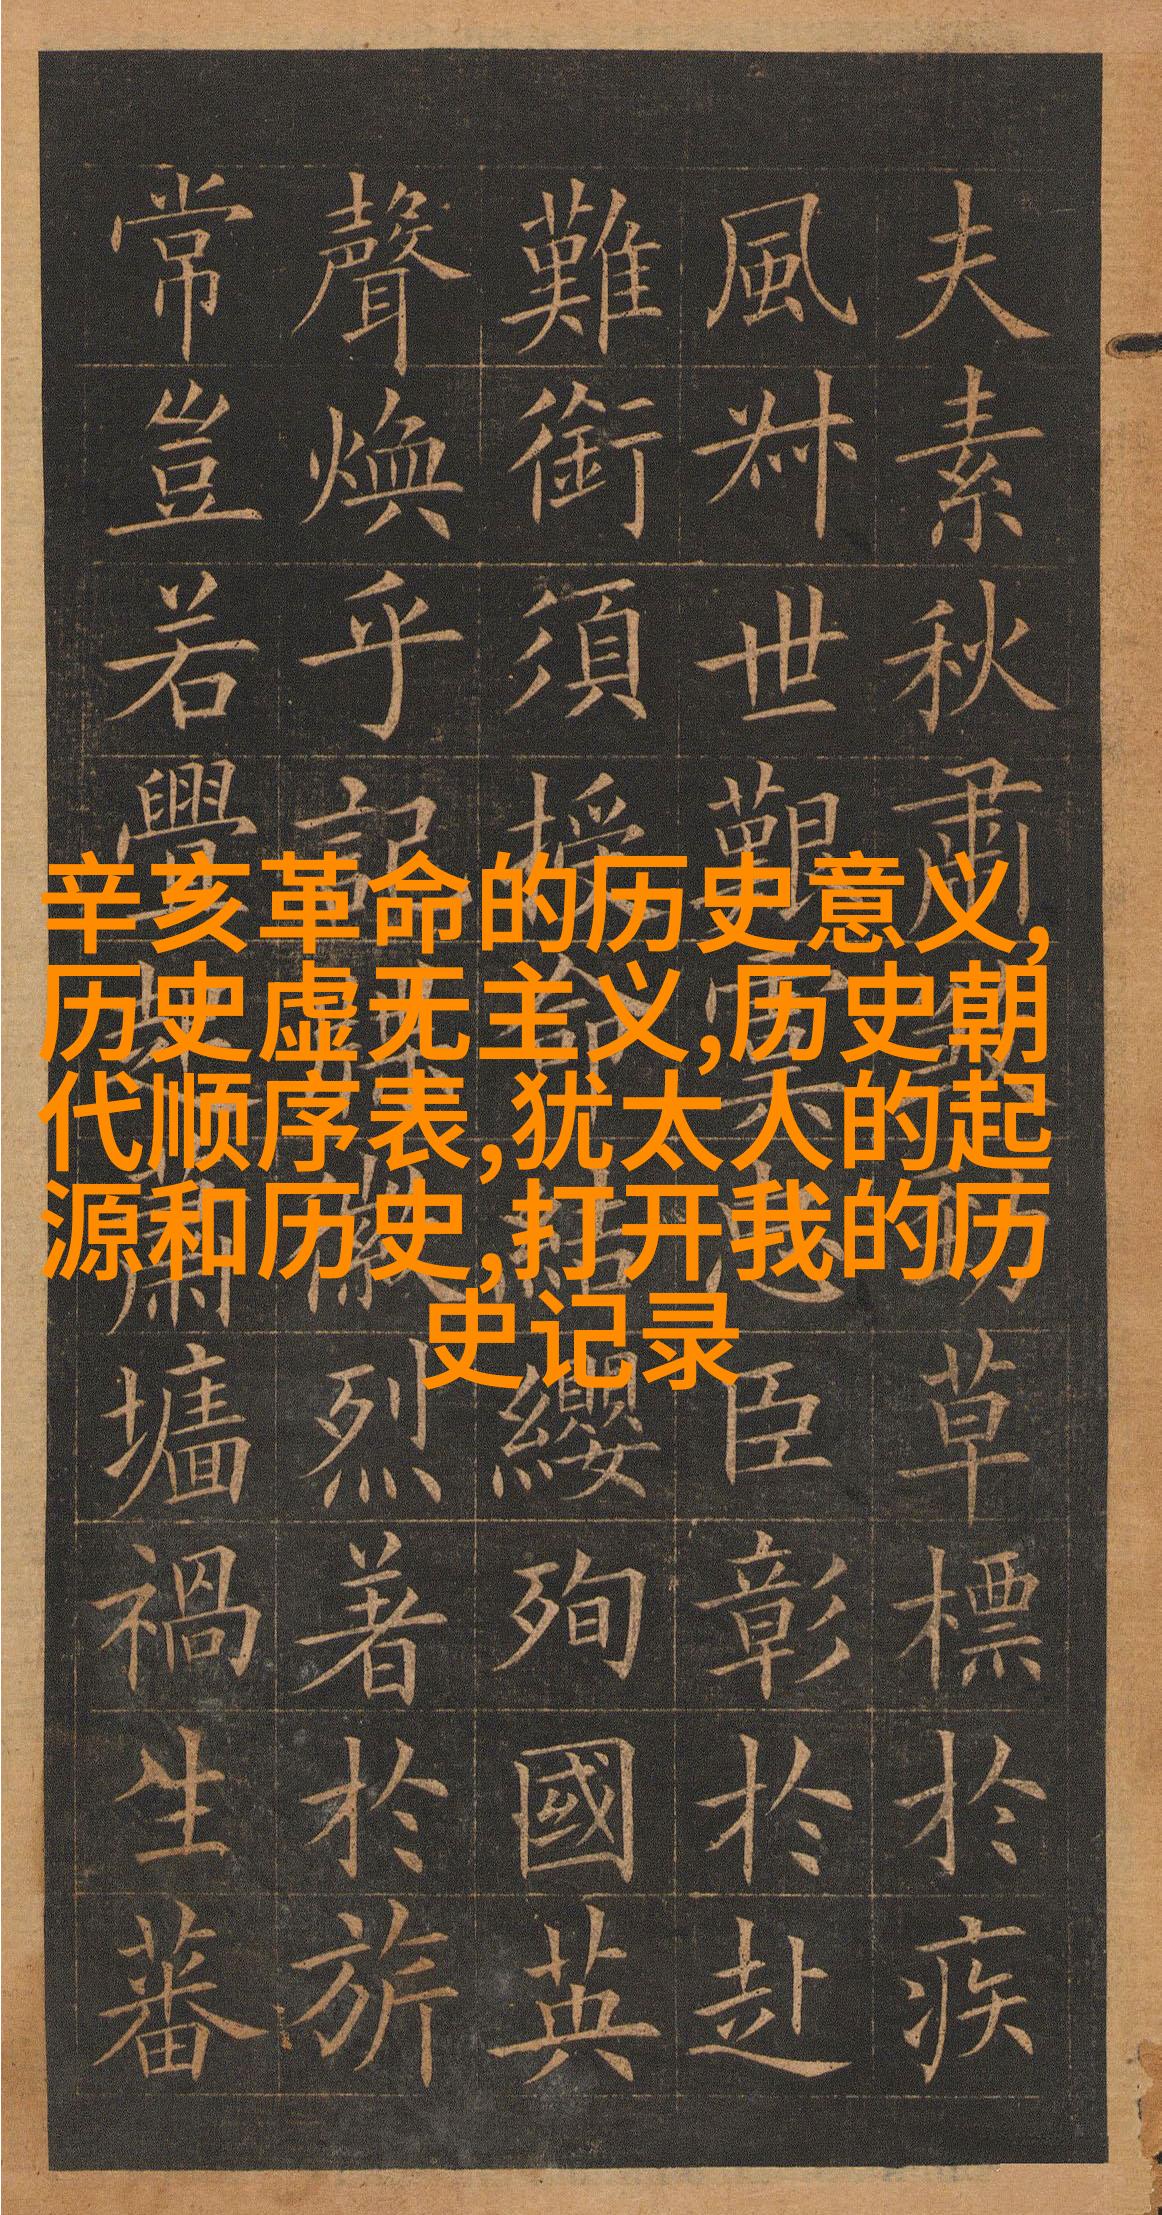 夫素秋肅勁草標於疾
風叔世艱虞忠臣彰於赴
難銜須授命結纓殉國英
聲煥乎記徽烈著於旂
常豈若舋蕭墻禍生蕃
辛亥革命的历史意义,
历史虚无主义,历史朝
代顺序表,犹太人的起
源和历史,打开我的历
史记录